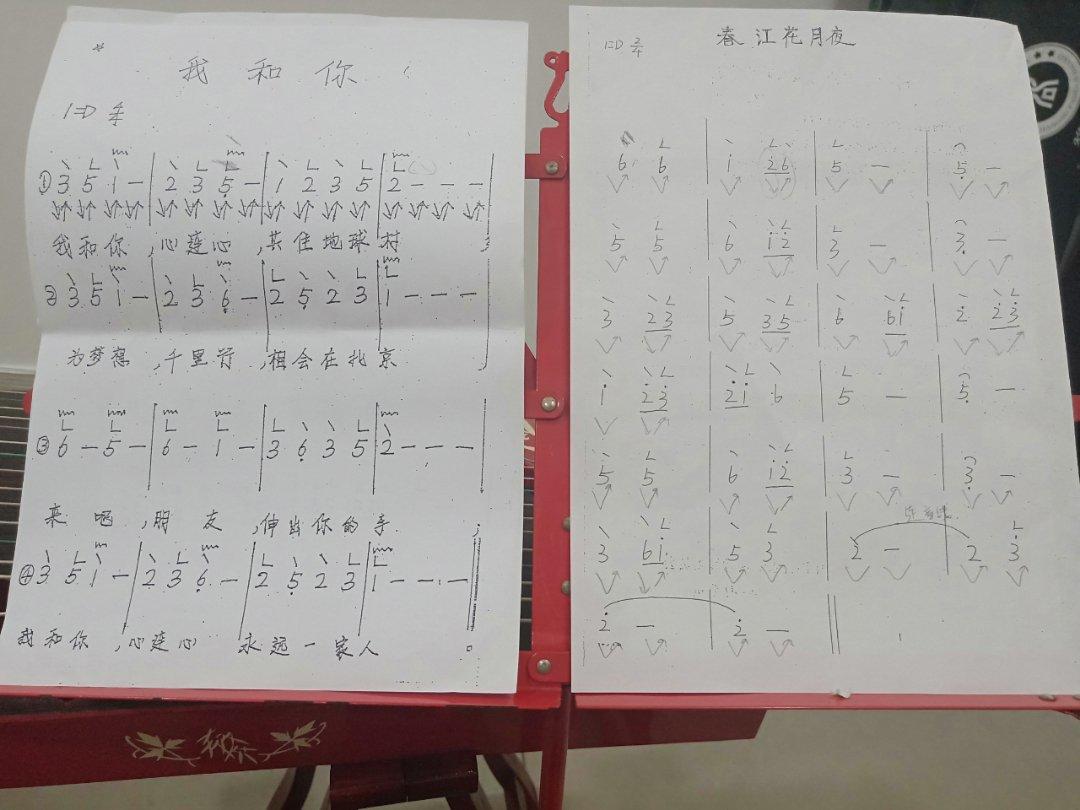 我和你
1=D 4/4
① 3 5 1 - | 2 3 5 - | 1 2 3 5 | 2 - - -
我和你，心连心，共住地球村
② 3 5 1 - | 2 3 6 - | 2 5 2 3 | 1 - - -
为梦想，千里行，相会在北京
③ 6 - 5 - | 6 - 1 - | 3 6 3 5 | 2 - - -
来吧，朋友，伸出你的手
④ 3 5 1 - | 2 3 6 - | 2 5 2 3 | 1 - - -
我和你，心连心 永远一家人
春江花月夜
1=D 2/4
6 6 | 1 26 | 5 - | 5 -
5 5 | 6 12 | 3 - | 3 -
3 23 | 5 35 | 6 61 | 2 23
1 23 | 21 6 | 5 - | 5 -
5 5 | 6 12 | 3 - | 3 -
3 61 | 5 3 | 2 - | 2 3
2 - | 2 -